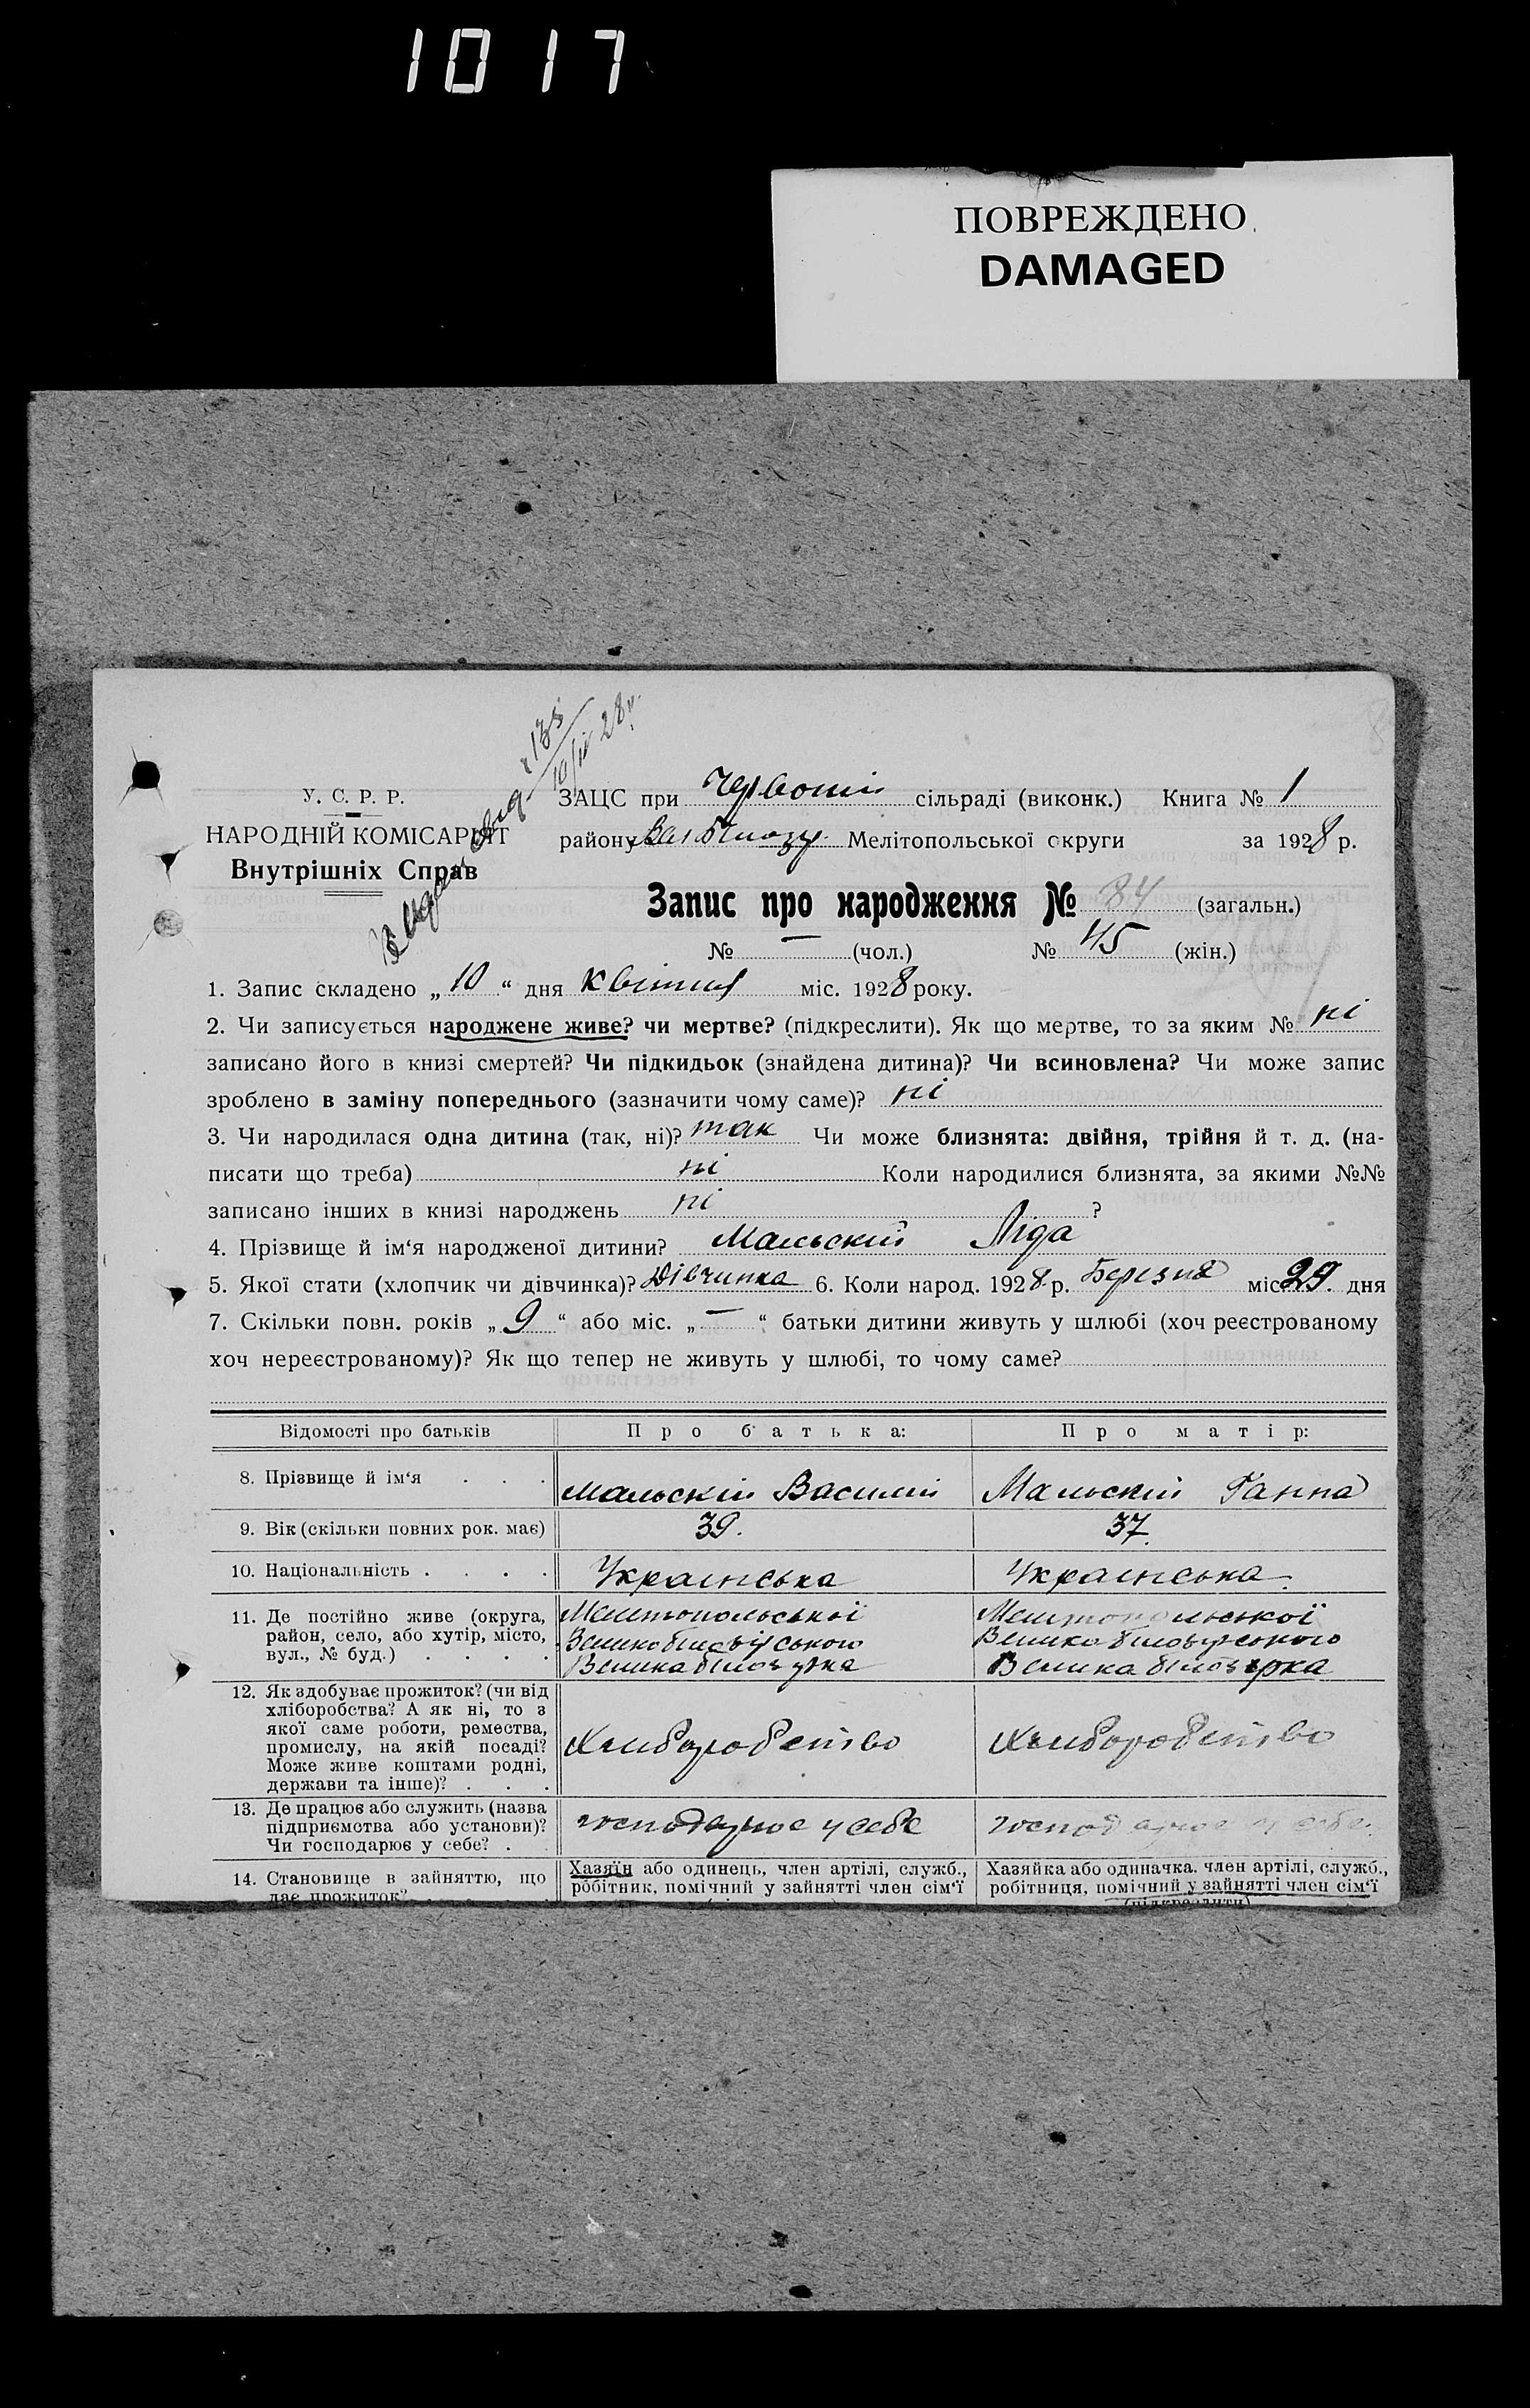 1017
ПОВРЕЖДЕНО
DAMAGED
№ 135
10/IV 28 р.
Видано свід.
У. С. Р. Р.
НАРОДНІЙ КОМІСАРІЯТ
Внутрішніх Справ
ЗАЦС при Червоній сільраді (виконк.) Книга № 1
району Вел Білозу. Мелітопольської округи за 1928 р.
Запис про народження № 84 (загальн.)
№ — (чол.) № 45 (жін.)
1. Запис складено „10“ дня Квітня міс. 1928 року.
2. Чи записується народжене живе? чи мертве? (підкреслити). Як що мертве, то за яким № ні
записано його в книзі смертей? Чи підкидьок (знайдена дитина)? Чи всиновлена? Чи може запис
зроблено в заміну попереднього (зазначити чому саме)? ні
3. Чи народилася одна дитина (так, ні)? так Чи може близнята: двійня, трійня й т. д. (на-
писати що треба) ні Коли народилися близнята, за якими №№
записано інших в книзі народжень ні ?
4. Прізвище й ім‘я народженої дитини? Мальский Ліда
5. Якої стати (хлопчик чи дівчинка)? Дівчинка 6. Коли народ. 1928 р. Березня міс. 29. дня
7. Скільки повн. років „9“ або міс. „—“ батьки дитини живуть у шлюбі (хоч реєстрованому
хоч нереєстрованому)? Як що тепер не живуть у шлюбі, то чому саме?
Відомості про батьків Про батька: Про матір:
8. Прізвище й ім‘я . . . Мальскій Василій Мальский Ганна
9. Вік (скільки повних рок. має) 39. 37.
10. Національність . . . . Українська Українська
11. Де постійно живе (округа, Мелітопольської Мелітопольської
район, село, або хутір, місто, Великобілозірського Великобілозірського
вул., № буд.) . . . . Велика білозірка Велика білозірка
12. Як здобуває прожиток? (чи від
хліборобства? А як ні, то з
якої саме роботи, ремества,
промислу, на якій посаді? Хліборобство Хліборобство
Може живе коштами родні,
держави та інше)? . . .
13. Де працює або служить (назва
підприємства або установи)? господарює у себе господарює у себе.
Чи господарює у себе? .
14. Становище в зайняттю, що Хазяїн або одинець, член артілі, служб., Хазяйка або одиначка. член артілі, служб.,
дає прожиток? робітник, помічний у зайнятті член сім‘ї робітниця, помічний у зайнятті член сім‘ї
(підкреслити)